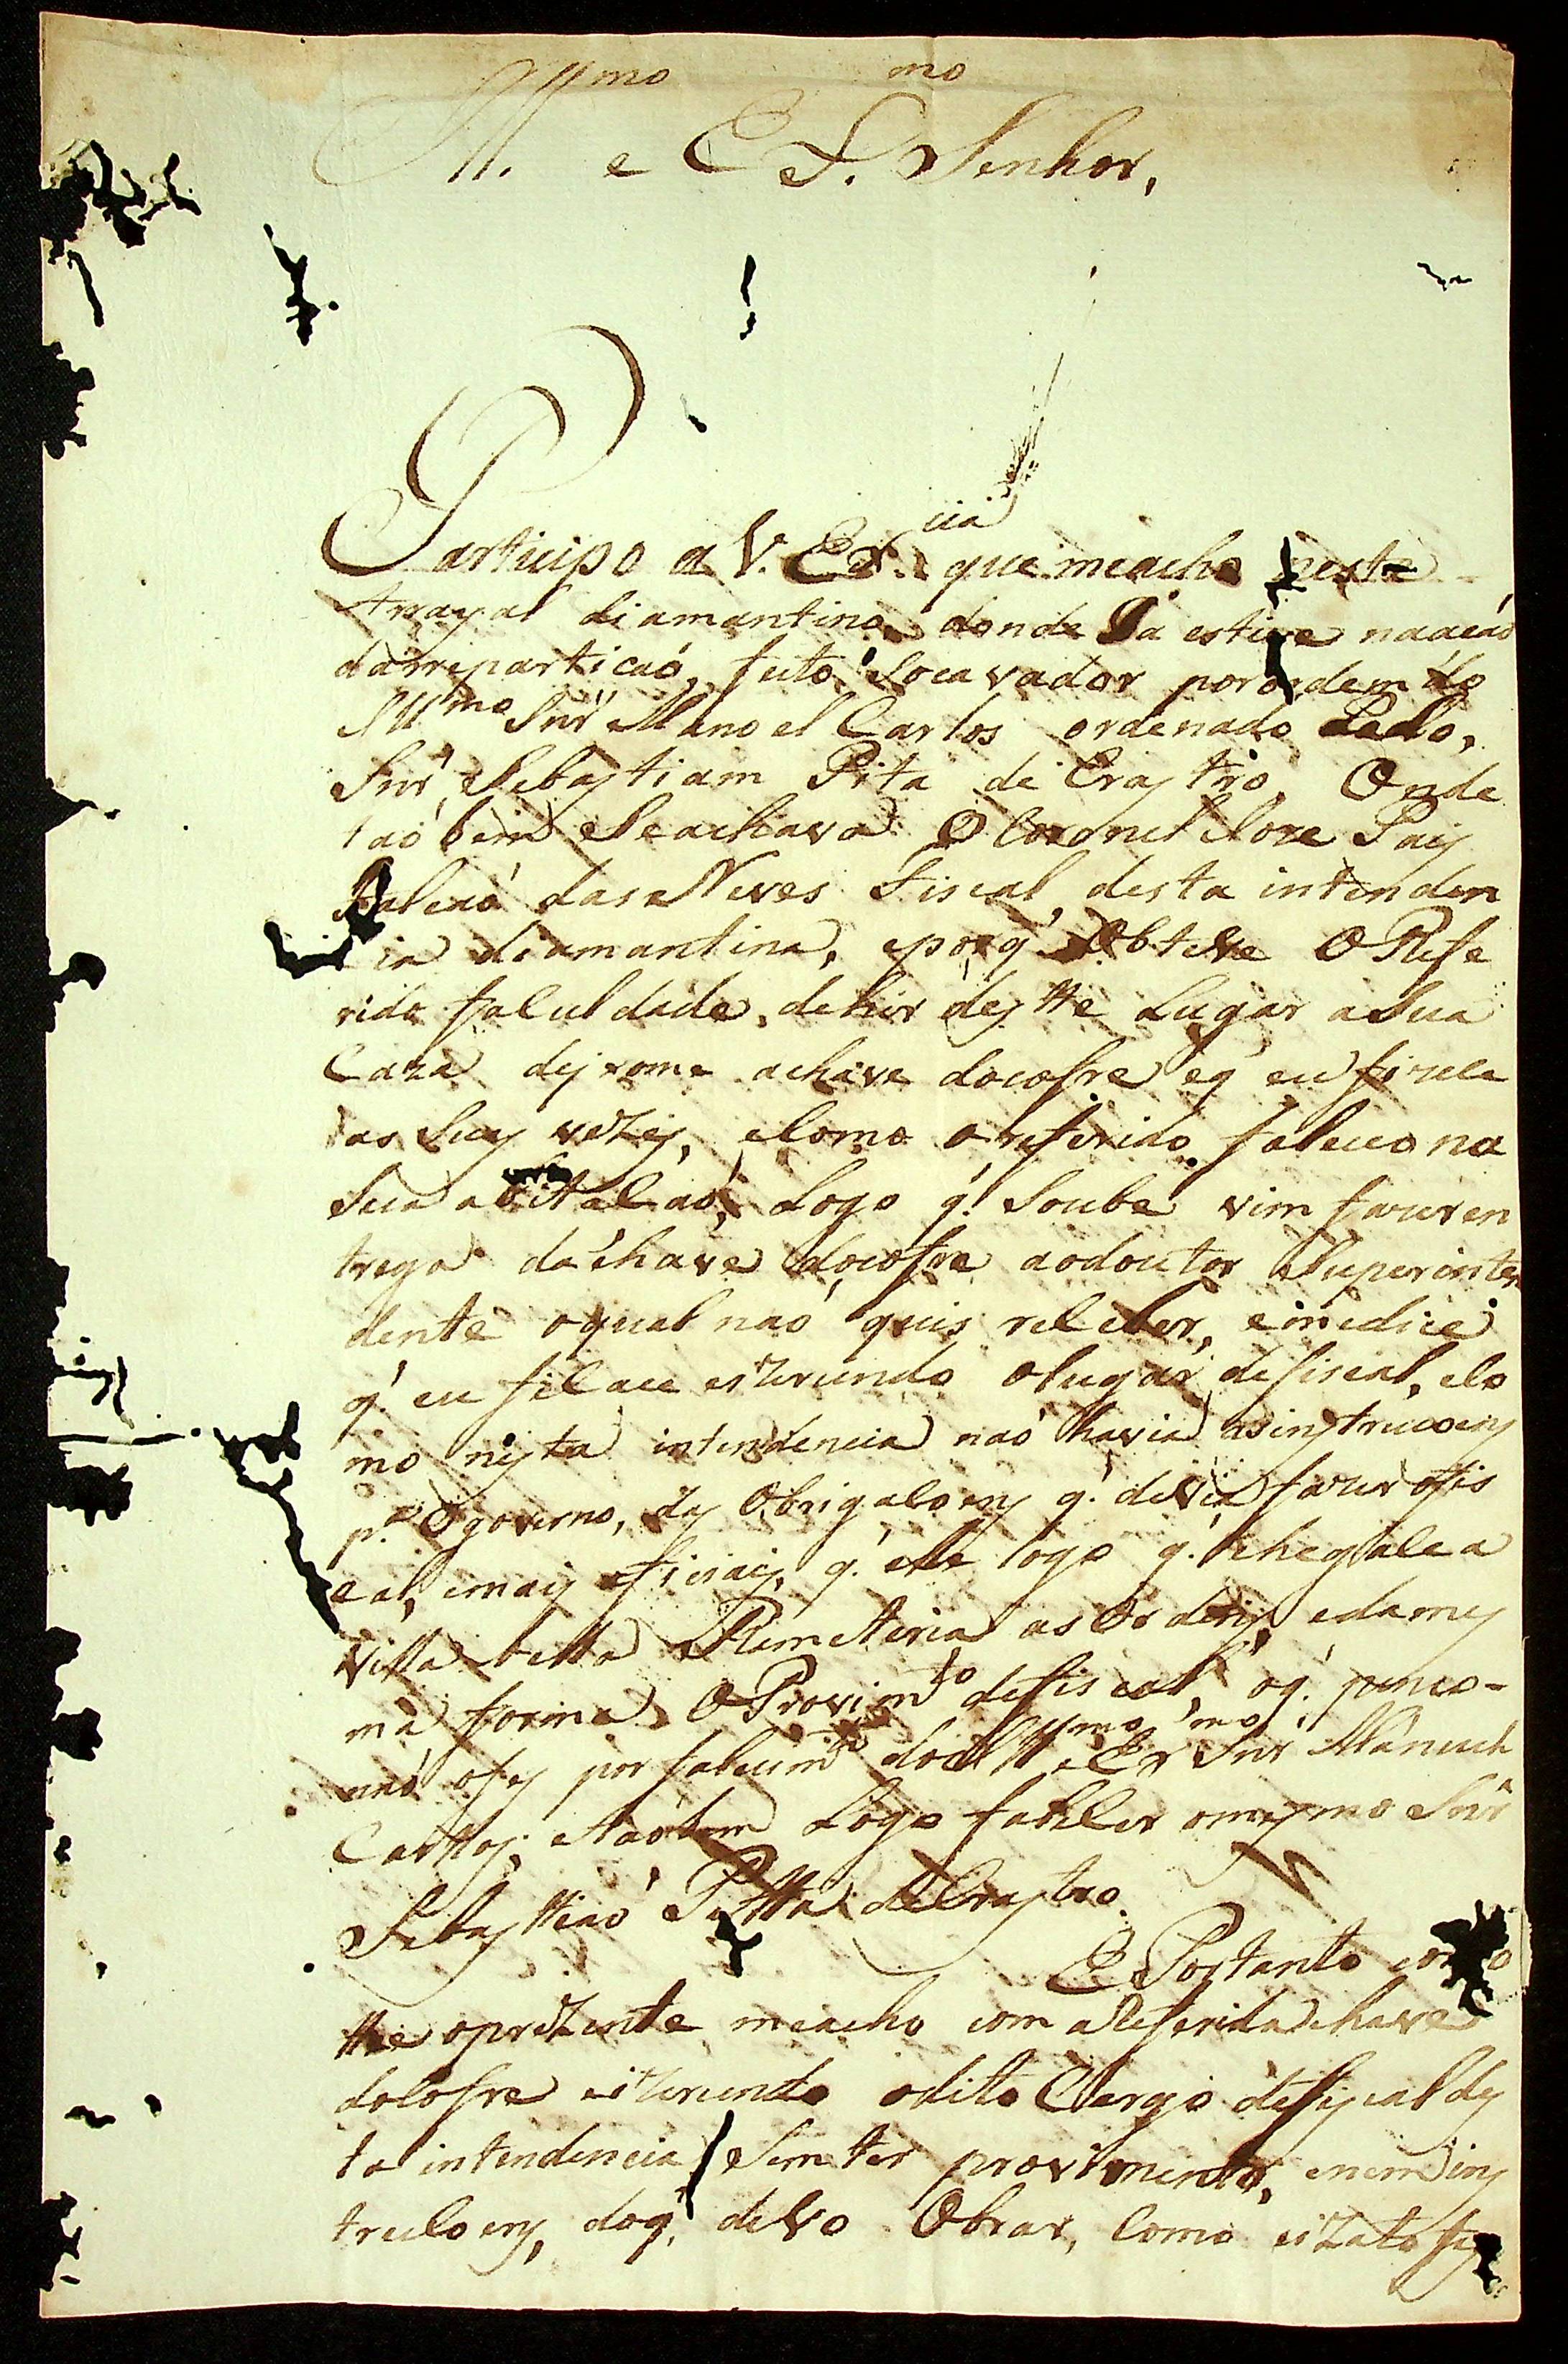 Ill.mo e Ex.mo Senhor,
Participo a V. Ex.cia que meacho nesta
trrayal diamantino donde Ja estive naacaó
darreparticaó, feito Socavador porordem do
Ill.mo Snr Manoel Carlos ordenado pello,
Snr Sebastiam Pita de Crastro, Onde
taóbem Seachava O Coronel Joze Pais
Falcaó das Neves Fiscal, desta intenden
cia diamantina, eporq' Obteve O Refe
rido faculdade, dehir destte Lugar aSua
Caza deixome achave docofre eq' eu fizece
as Suas vezes, eComo oreferido faleceo na
Sua abitacaó, Logo q' Soube vim fazer en
trega dachave docofre aodoutor Superinten
dente oqual naó quis receber, emedice
q' eu ficace exzercendo olugar defiscal, eCo
mo nesta intendencia naó havia asinstrucoens
p.a Ogoverno, das Obrigacoens q' devia fazer ofis
cal, emais oficiais, q' elle logo q' chegace a
Villa bella Remeteria as Ordens, edames
ma forma O Provim.to defiscal, oq' penco
naó ofes por falecim.to do Ill.mo e Ex.mo Snr Manuel
Carllos, etaóbem Logo falecer omesmo Snr
Sebasttiaó Pitta deCrastro.
E Portanto como
the oprezente meacho com aReferida chave
docofre exzercendo odito Cargo defiscal des
ta intendencia Semter provimento, enem ins
trucoens, doq' devo Obrar, Como exzato fis